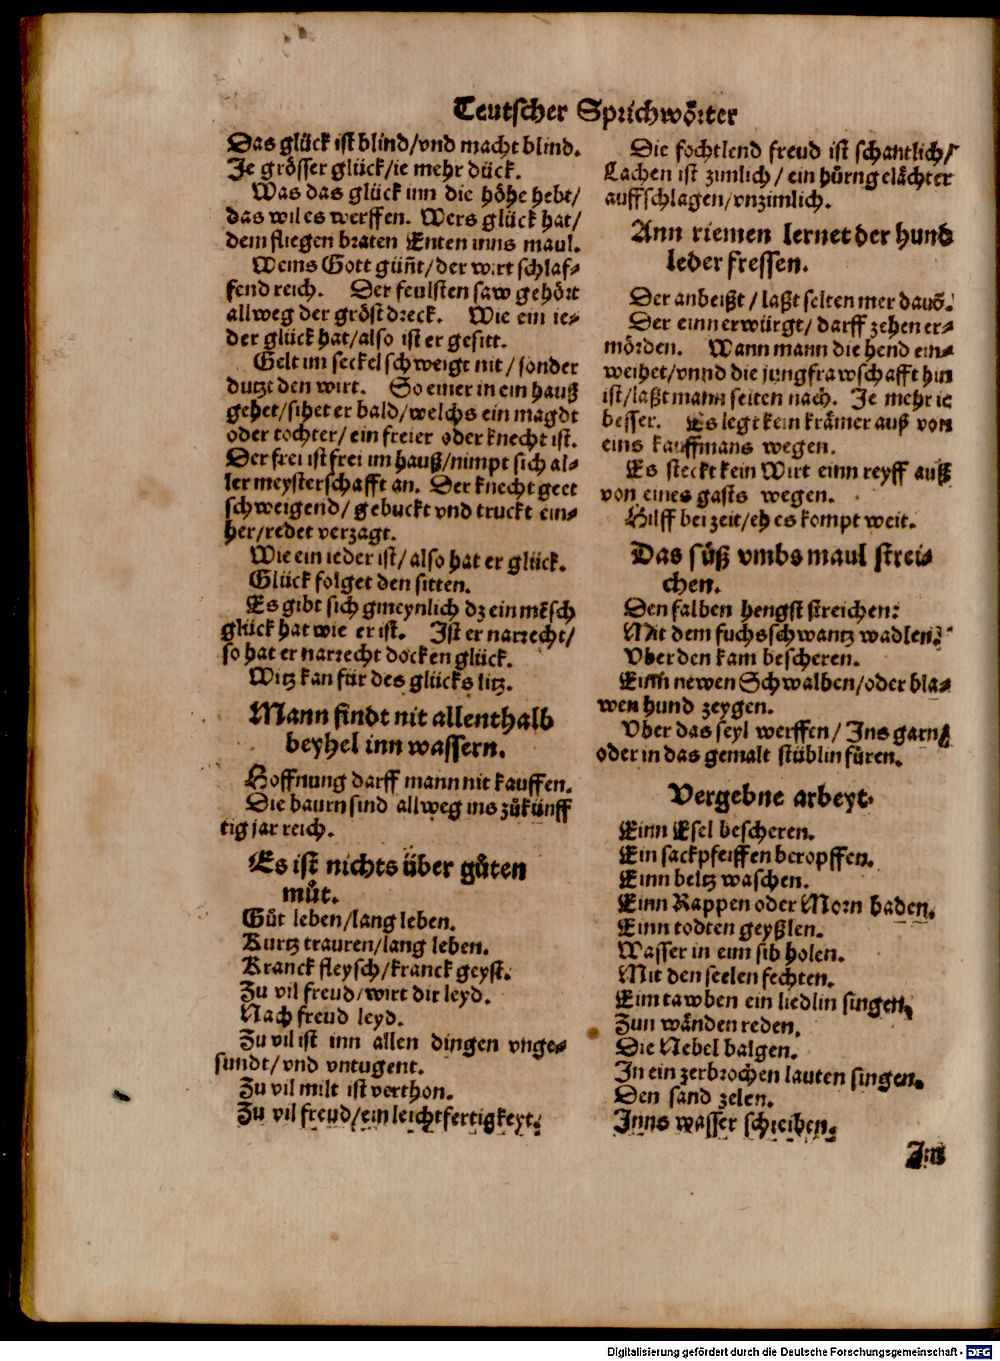 Teutscher Sprichwoͤrter
Das glück ist blind/vnd macht blind.
Je groͤsser glück/ie mehr dück.
Was das glück inn die hoͤhe hebt/
das wil es werffen. Wers glück hat/
dem fliegen braten Enten inns maul.
Wems Gott güñt/der wirt schlaf-
fend reich. Der feulsten saw gehoͤrt
allweg der groͤst dreck. Wie ein ie-
der glück hat/also ist er gesitt.
Gelt im seckel schweigt nit/sonder
dutzt den wirt. So einer in ein hauß
gehet/sihet er bald/welchs ein magdt
oder tochter/ein freier oder knecht ist.
Der frei ist frei im hauß/nimpt sich al-
ler meysterschafft an. Der knecht geet
schweigend/gebuckt vnd truckt ein-
her/redet verzagt.
Wie ein ieder ist/also hat er glück.
Glück folget den sitten.
Es gibt sich gmeynlich dz ein mẽsch
glück hat wie er ist. Ist er narrecht/
so hat er narrecht docken glück.
Witz kan für des glücks litz.
Mann findt nit allenthalb
beyhel inn wassern.
Hoffnung darff mann nit kauffen.
Die baurn sind allweg ins zůkünff
tig jar reich.
Es ist nichts über gůten
můt.
Gůt leben/lang leben.
Kurtz trauren/lang leben.
Kranck fleysch/kranck geyst.
Zu vil freud/wirt dir leyd.
Nach freud leyd.
Zu vil ist inn allen dingen vnge-
sundt/vnd vntugent.
Zu vil milt ist verthon.
Zu vil freud/ein leichtfertigkeyt.
Die fochtlend freud ist schantlich/
Lachen ist zimlich/ein hůrngelaͤchter
auffschlagen/vnzimlich.
Ann riemen lernet der hund
leder fressen.
Der anbeißt/laßt selten mer dauõ.
Der einn erwürgt/darff zehen er-
moͤrden. Wann mann die hend ein-
weihet/vnnd die jungfrawschafft hin
ist/laßt mann seiten nach. Je mehr ie
besser. Es legt kein kraͤmer auß von
eins kauffmans wegen.
Es steckt kein Wirt einn reyff auß
von eines gasts wegen.
Hilff bei zeit/eh es kompt weit.
Das sůß vmbs maul strei-
chen.
Den falben hengst streichen:
Mit dem fuchsschwantz wadlen.
Vber den kam bescheren.
Einn newen Schwalben/oder bla-
wen hund zeygen.
Vber das seyl werffen/Ins garn/
oder in das gemalt stüblin fůren.
Vergebne arbeyt.
Einn Esel bescheren.
Ein sackpfeiffen beropffen.
Einn beltz waschen.
Einn Rappen oder Morn baden.
Einn todten geyßlen.
Wasser in eim sib holen.
Mit den seelen fechten.
Eim tawben ein liedlin singen.
Zun waͤnden reden.
Die Nebel balgen.
In ein zerbrochen lauten singen.
Den sand zelen.
Inns wasser schreiben.
Digitalisierung gefördert durch die Deutsche Forschungsgemeinschaft - DFG